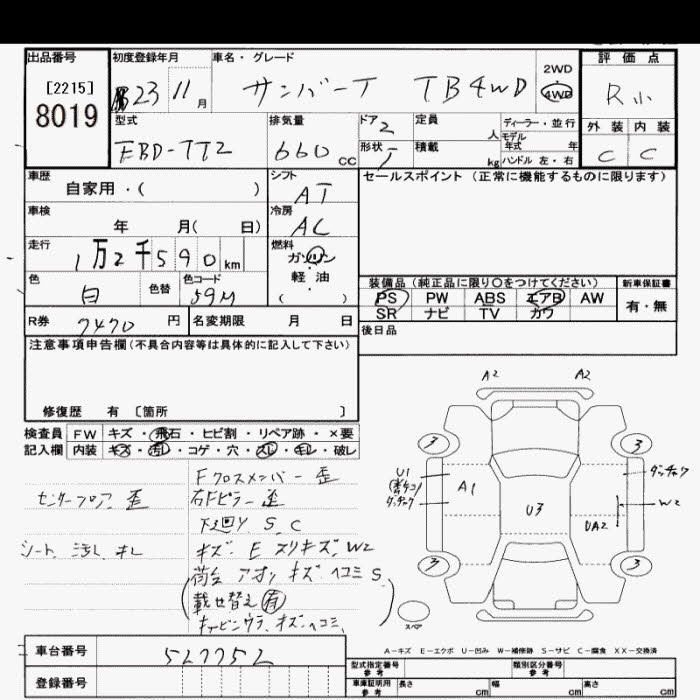 出品番号
[2215]
8019
初度登録年月
23 11月
車名・グレード
サンバーT TB 4WD
2WD
4WD
評価点
R小
外装 内装
C C
型式
EBD-TT2
排気量
660 cc
ドア 2
形状
定員 人
積載 kg
ディーラー・並行
モデル年式 年
ハンドル 左・右
車歴
自家用・( )
シフト
AT
セールスポイント (正常に機能するものに限ります)
車検
年 月( 日)
冷房
AC
走行
1万2千590km
燃料
ガソリン
・
軽油
( )
色
白
色替
色コード
59M
装備品 (純正品に限り〇をつけてください)
PS PW ABS エアB AW
SR ナビ TV カワ
新車保証書
有・無
R券 7470 円
名変期限 月 日
後日品
注意事項申告欄(不具合内容等は具体的に記入して下さい)
修復歴 有 〔箇所 〕
検査員 FW キズ・飛石・ヒビ割・リペア跡・×要
記入欄 内装 キズ・汚れ・コゲ・穴・スレ・キレ・破レ
Fクロスメンバー歪
センターフロア 歪
右Fピラー 歪
下廻り S. C
シート 汚れ キレ
キズ. E スリキズ. W2
荷台 アオリ キズ ヘコミ S
載せ替え 有
キャビンウラ. キズ. ヘコミ.
A2 A2
3 3
U1
A1
U3
UA2
W2
ダッチャク
ダッチャク
3 3
スペア
A-キズ E-エクボ U-凹み W-補修跡 S-サビ C-腐食 XX-交換済
車台番号 527752
登録番号
型式指定番号
参考
類別区分番号
参考
車庫証明用
参考
長さ cm 幅 cm 高さ cm